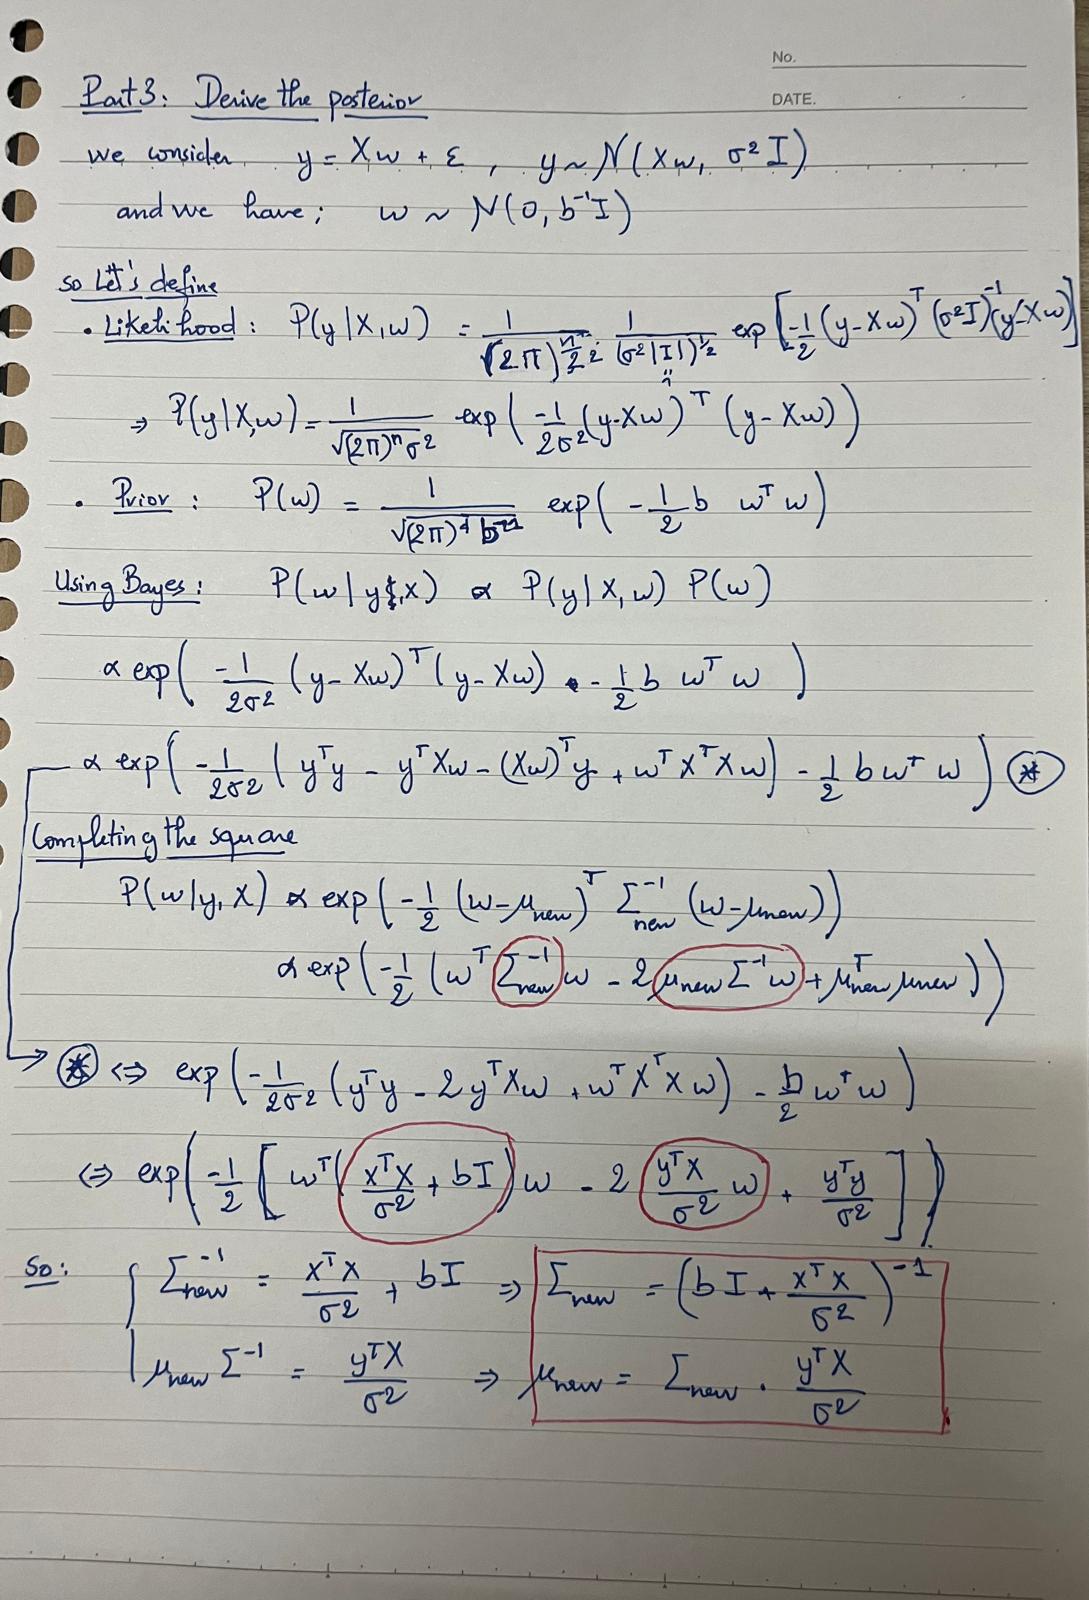 No.
DATE.
Part 3: Derive the posterior
we consider y = Xw + ε , y ~ N(Xw, σ² I)
and we have; w ~ N(0, b⁻¹I)
so Let's define
• Likelihood : P(y|X,w) = 1/(√(2π)^(n/2)) · 1/(σ²|I|)^(1/2) exp[-1/2 (y-Xw)ᵀ (σ²I)⁻¹(y-Xw)]
⇒ P(y|X,w) = 1/√((2π)ⁿ σ²) exp(-1/(2σ²) (y-Xw)ᵀ (y-Xw))
• Prior : P(w) = 1/√((2π)ᵈ b⁻¹) exp(-1/2 b wᵀ w)
Using Bayes: P(w|y,x) α P(y|X,w) P(w)
α exp(-1/(2σ²) (y-Xw)ᵀ(y-Xw) - 1/2 b wᵀ w )
α exp(-1/(2σ²) (yᵀy - yᵀXw - (Xw)ᵀy + wᵀXᵀXw) - 1/2 b wᵀ w) (*)
Completing the square
P(w|y,X) α exp(-1/2 (w-μnew)ᵀ Σnew⁻¹ (w-μnew))
α exp(-1/2 (wᵀ Σnew⁻¹ w - 2 μnew Σ⁻¹w + μnewᵀ μnew))
(*) ⇔ exp(-1/(2σ²) (yᵀy - 2yᵀXw + wᵀXᵀXw) - b/2 wᵀw)
⇔ exp(-1/2 [wᵀ(XᵀX/σ² + bI)w - 2 yᵀX/σ² w + yᵀy/σ²])
So: Σnew⁻¹ = XᵀX/σ² + bI ⇒ Σnew = (bI + XᵀX/σ²)⁻¹
μnew Σ⁻¹ = yᵀX/σ² ⇒ μnew = Σnew · yᵀX/σ²